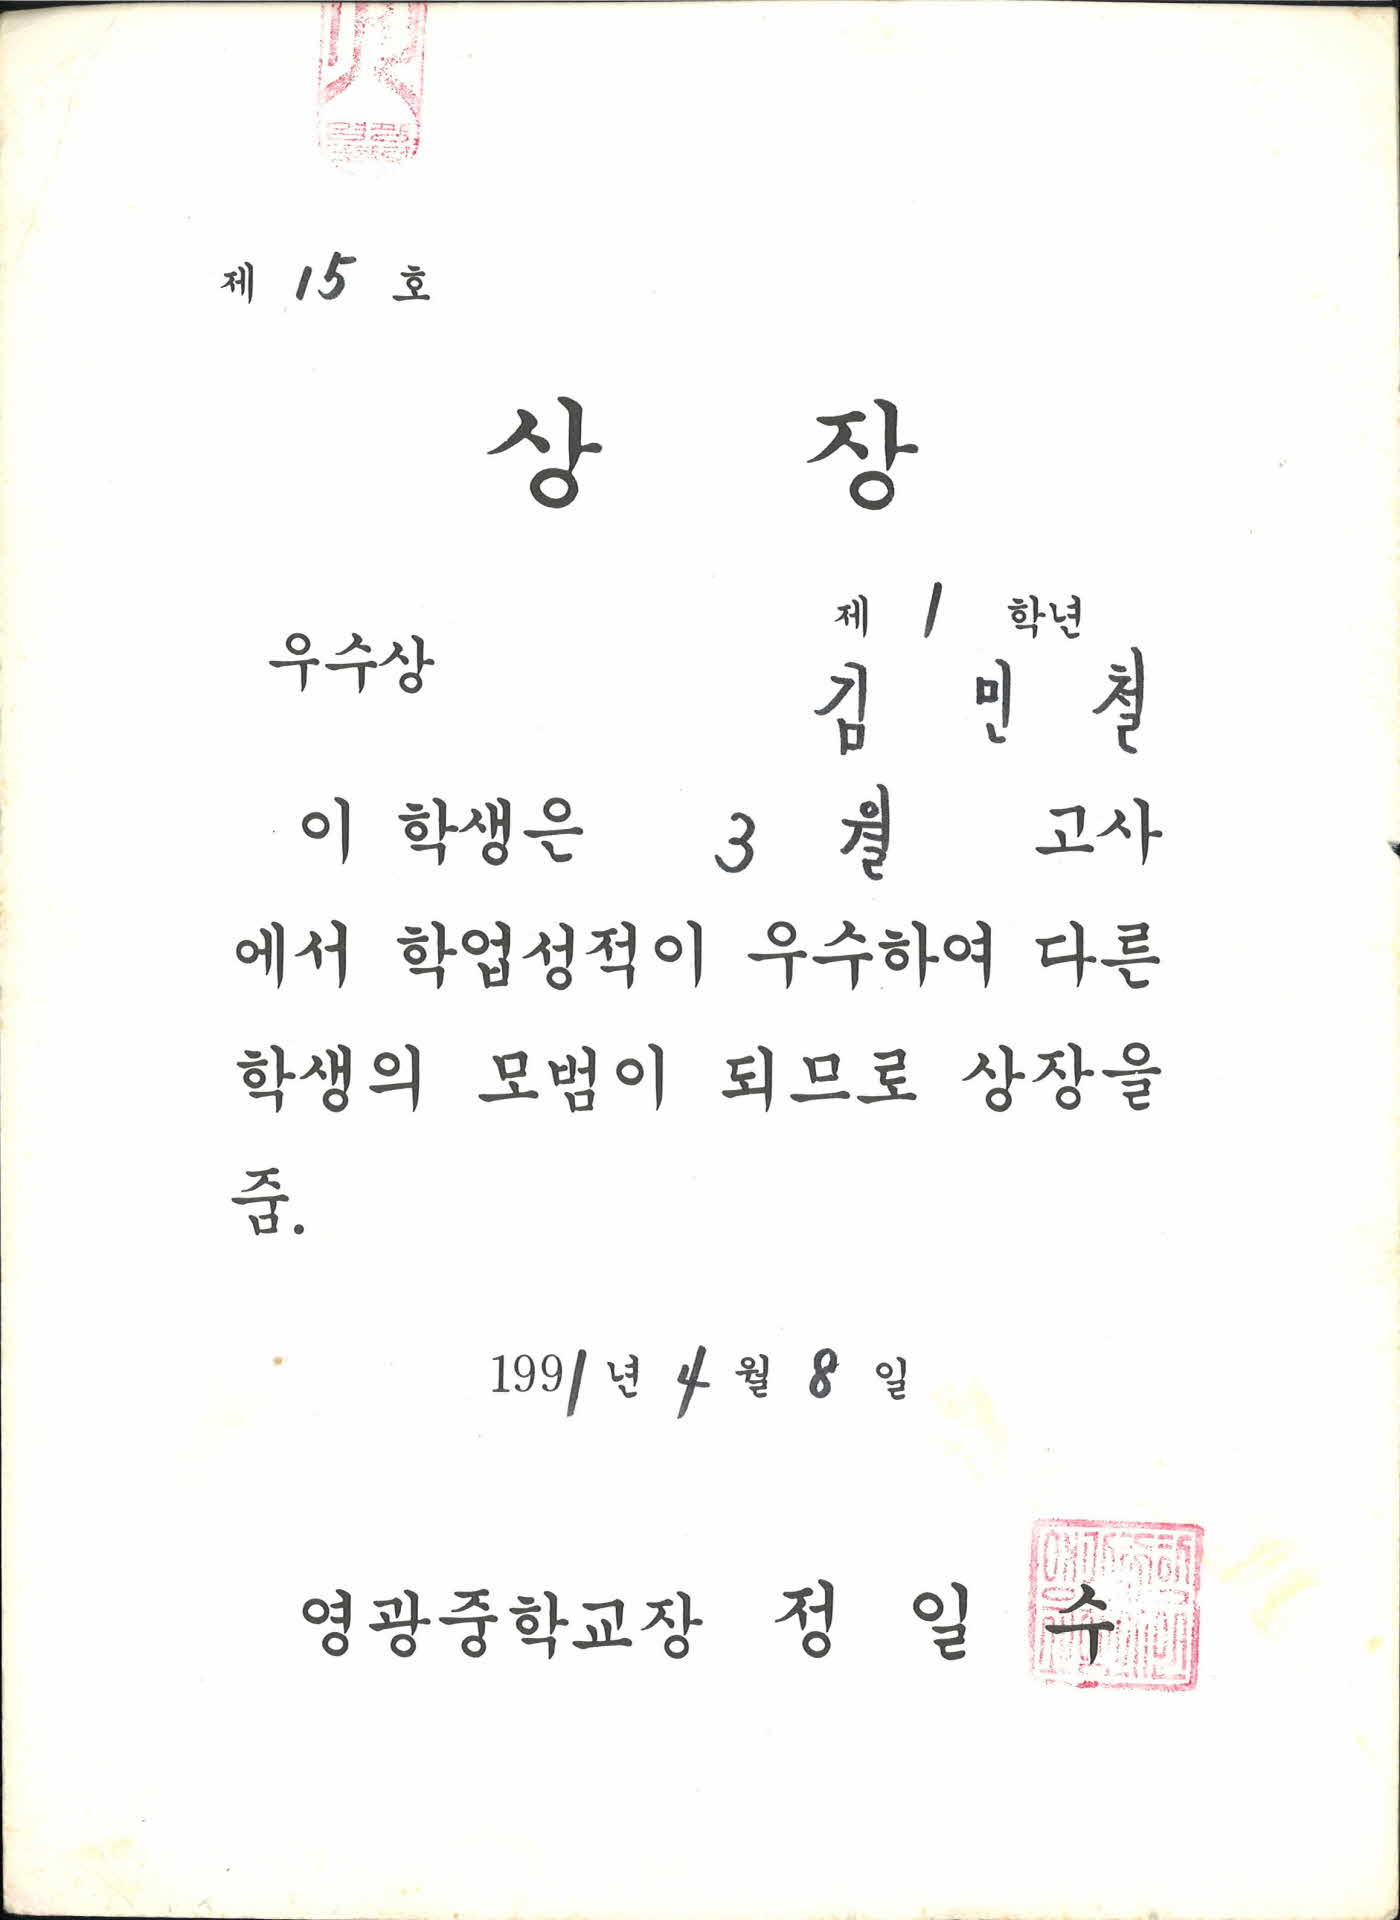 제 15 호
상 장
제 1 학년
우수상
김 민 철
이 학생은 3 월 고사
에서 학업성적이 우수하여 다른
학생의 모범이 되므로 상장을
줌.
1991년 4월 8일
영광중학교장 정 일 수